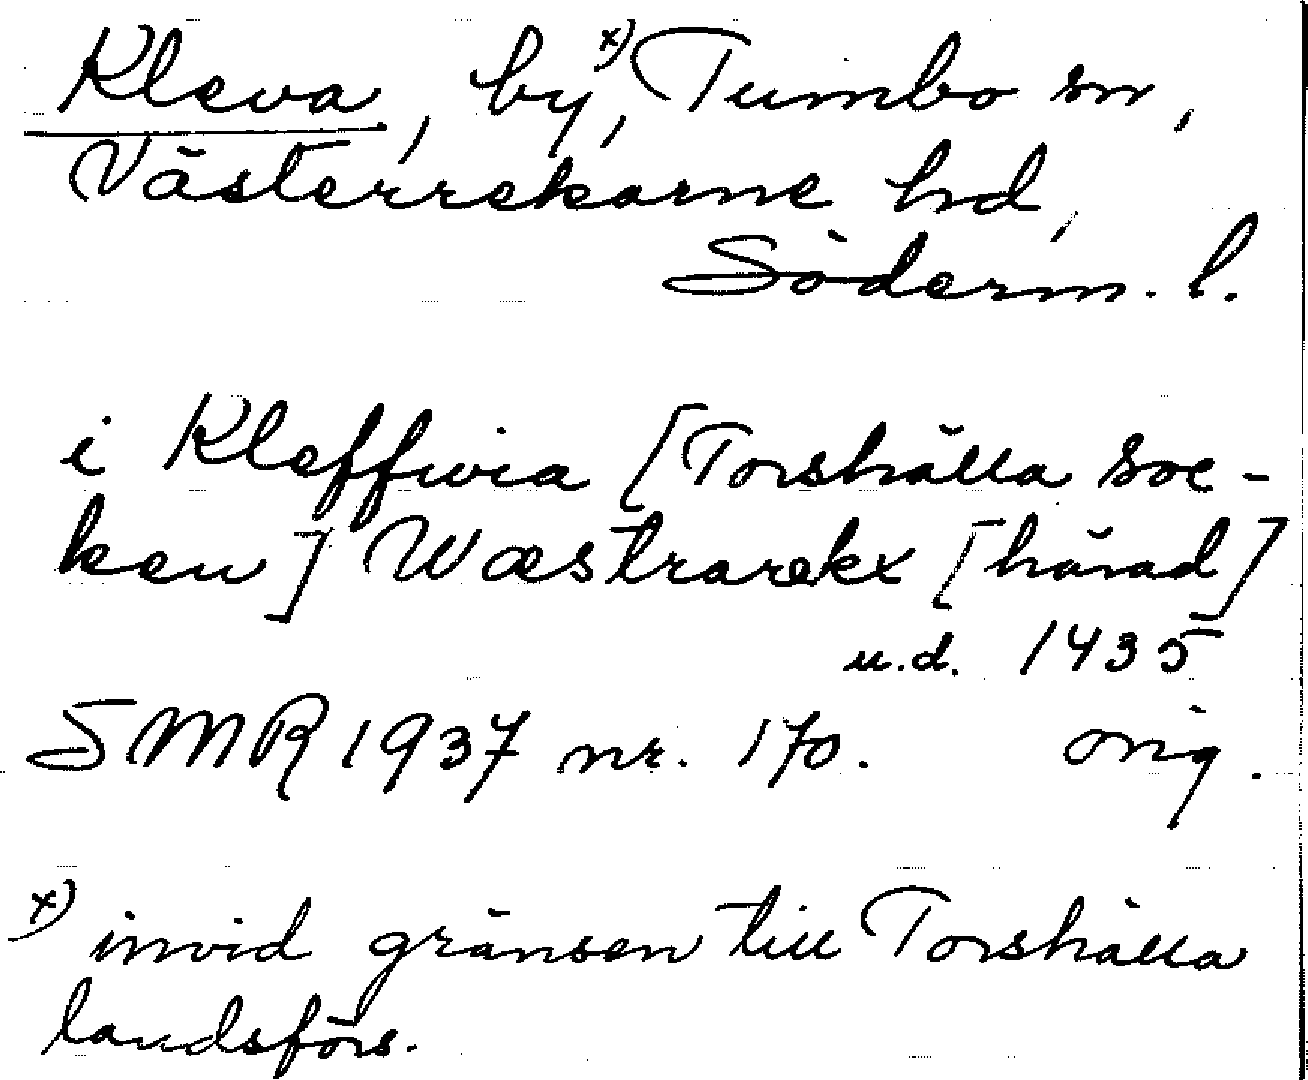 Kleva, by x), Tumbo sn,
Västerrekarne hd,
Söderm. l.
i Kleffwia [Torshälla soc-
ken] Wæstrarekx [härad]
u.d. 1435
SMR 1937 nr. 170. orig.
x) invid gränsen till Torshälla
landsförs.